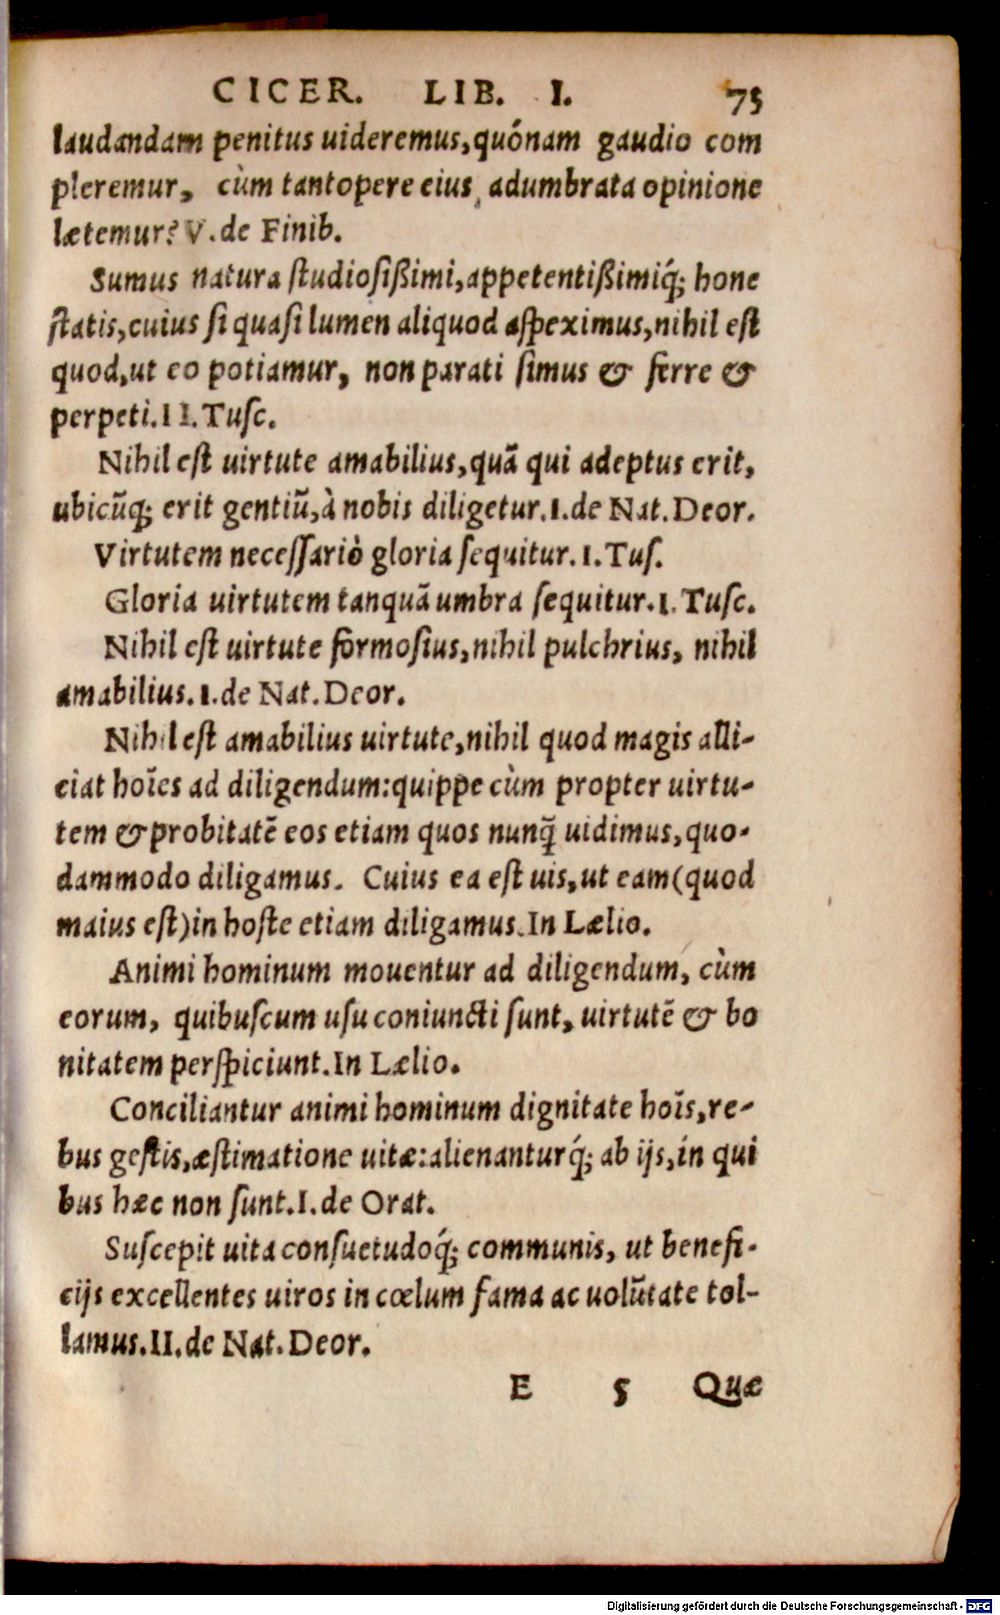 CICER. LIB. I. 75
laudandam penitus uideremus,quónam gaudio com
pleremur, cùm tantopere eius adumbrata opinione
lætemur? V.de Finib.
Sumus natura ſtudioſißimi,appetentißimiq́; hone
ſtatis,cuius ſi quaſi lumen aliquod aſpeximus,nihil eſt
quod,ut eo potiamur, non parati ſimus & ferre &
perpeti.II.Tuſc.
Nihil eſt uirtute amabilius,quã qui adeptus erit,
ubicũq; erit gentiũ,à nobis diligetur.I.de Nat.Deor.
Virtutem neceſſariò gloria ſequitur.I.Tuſ.
Gloria uirtutem tanquã umbra ſequitur.I.Tuſc.
Nihil eſt uirtute formoſius,nihil pulchrius, nihil
amabilius.I.de Nat.Deor.
Nihil eſt amabilius uirtute,nihil quod magis alli-
ciat hoīes ad diligendum:quippe cùm propter uirtu-
tem & probitatē eos etiam quos nunq̃ uidimus,quo-
dammodo diligamus. Cuius ea eſt uis,ut eam(quod
maius eſt)in hoſte etiam diligamus.In Lælio.
Animi hominum mouentur ad diligendum, cùm
eorum, quibuſcum uſu coniuncti ſunt, uirtutē & bo
nitatem perſpiciunt.In Lælio.
Conciliantur animi hominum dignitate hoīs,re-
bus geſtis,æſtimatione uitæ:alienanturq́; ab ijs,in qui
bus hæc non ſunt.I.de Orat.
Suſcepit uita conſuetudoq́; communis, ut benefi-
cijs excellentes uiros in cœlum fama ac uolũtate tol-
lamus.II.de Nat.Deor.
E 5 Quæ
Digitalisierung gefördert durch die Deutsche Forschungsgemeinschaft - DFG